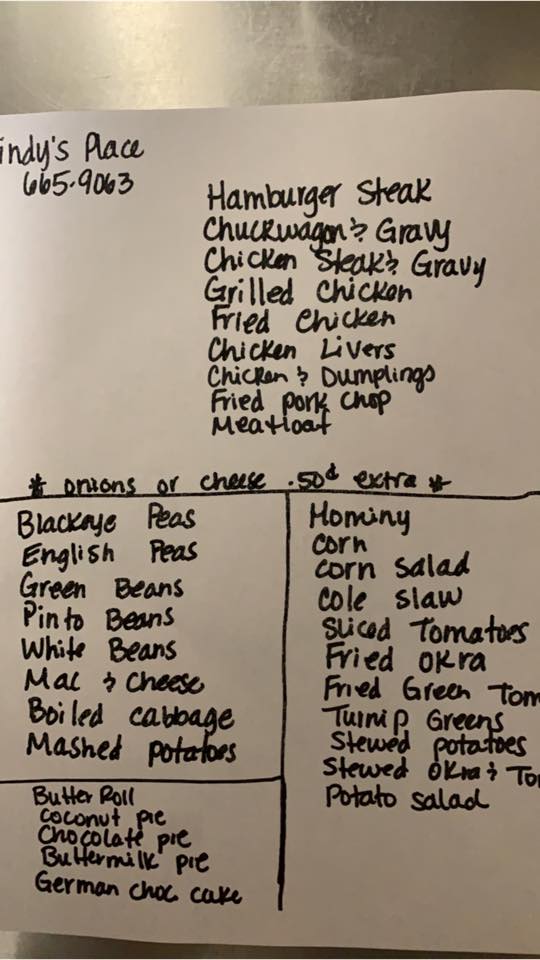 indy's Place
665-9063
Hamburger Steak
Chuckwagon & Gravy
Chicken Steak & Gravy
Grilled Chicken
Fried Chicken
Chicken Livers
Chicken & Dumplings
Fried pork chop
Meatloaf
* onions or cheese .50¢ extra *
Blackeye Peas
English Peas
Green Beans
Pinto Beans
White Beans
Mac & Cheese
Boiled cabbage
Mashed potatoes
Hominy
corn
corn salad
cole slaw
Sliced Tomatoes
Fried okra
Fried Green Tom
Turnip Greens
Stewed potatoes
Stewed okra & To
Potato salad
Butter Roll
coconut pie
Chocolate pie
Buttermilk pie
German choc cake